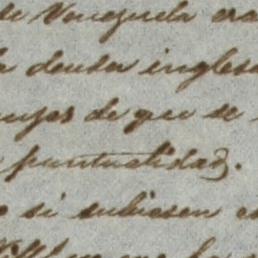 de Venezuela era
deuda inglesa
de que se
puntualidad.
si subiesen